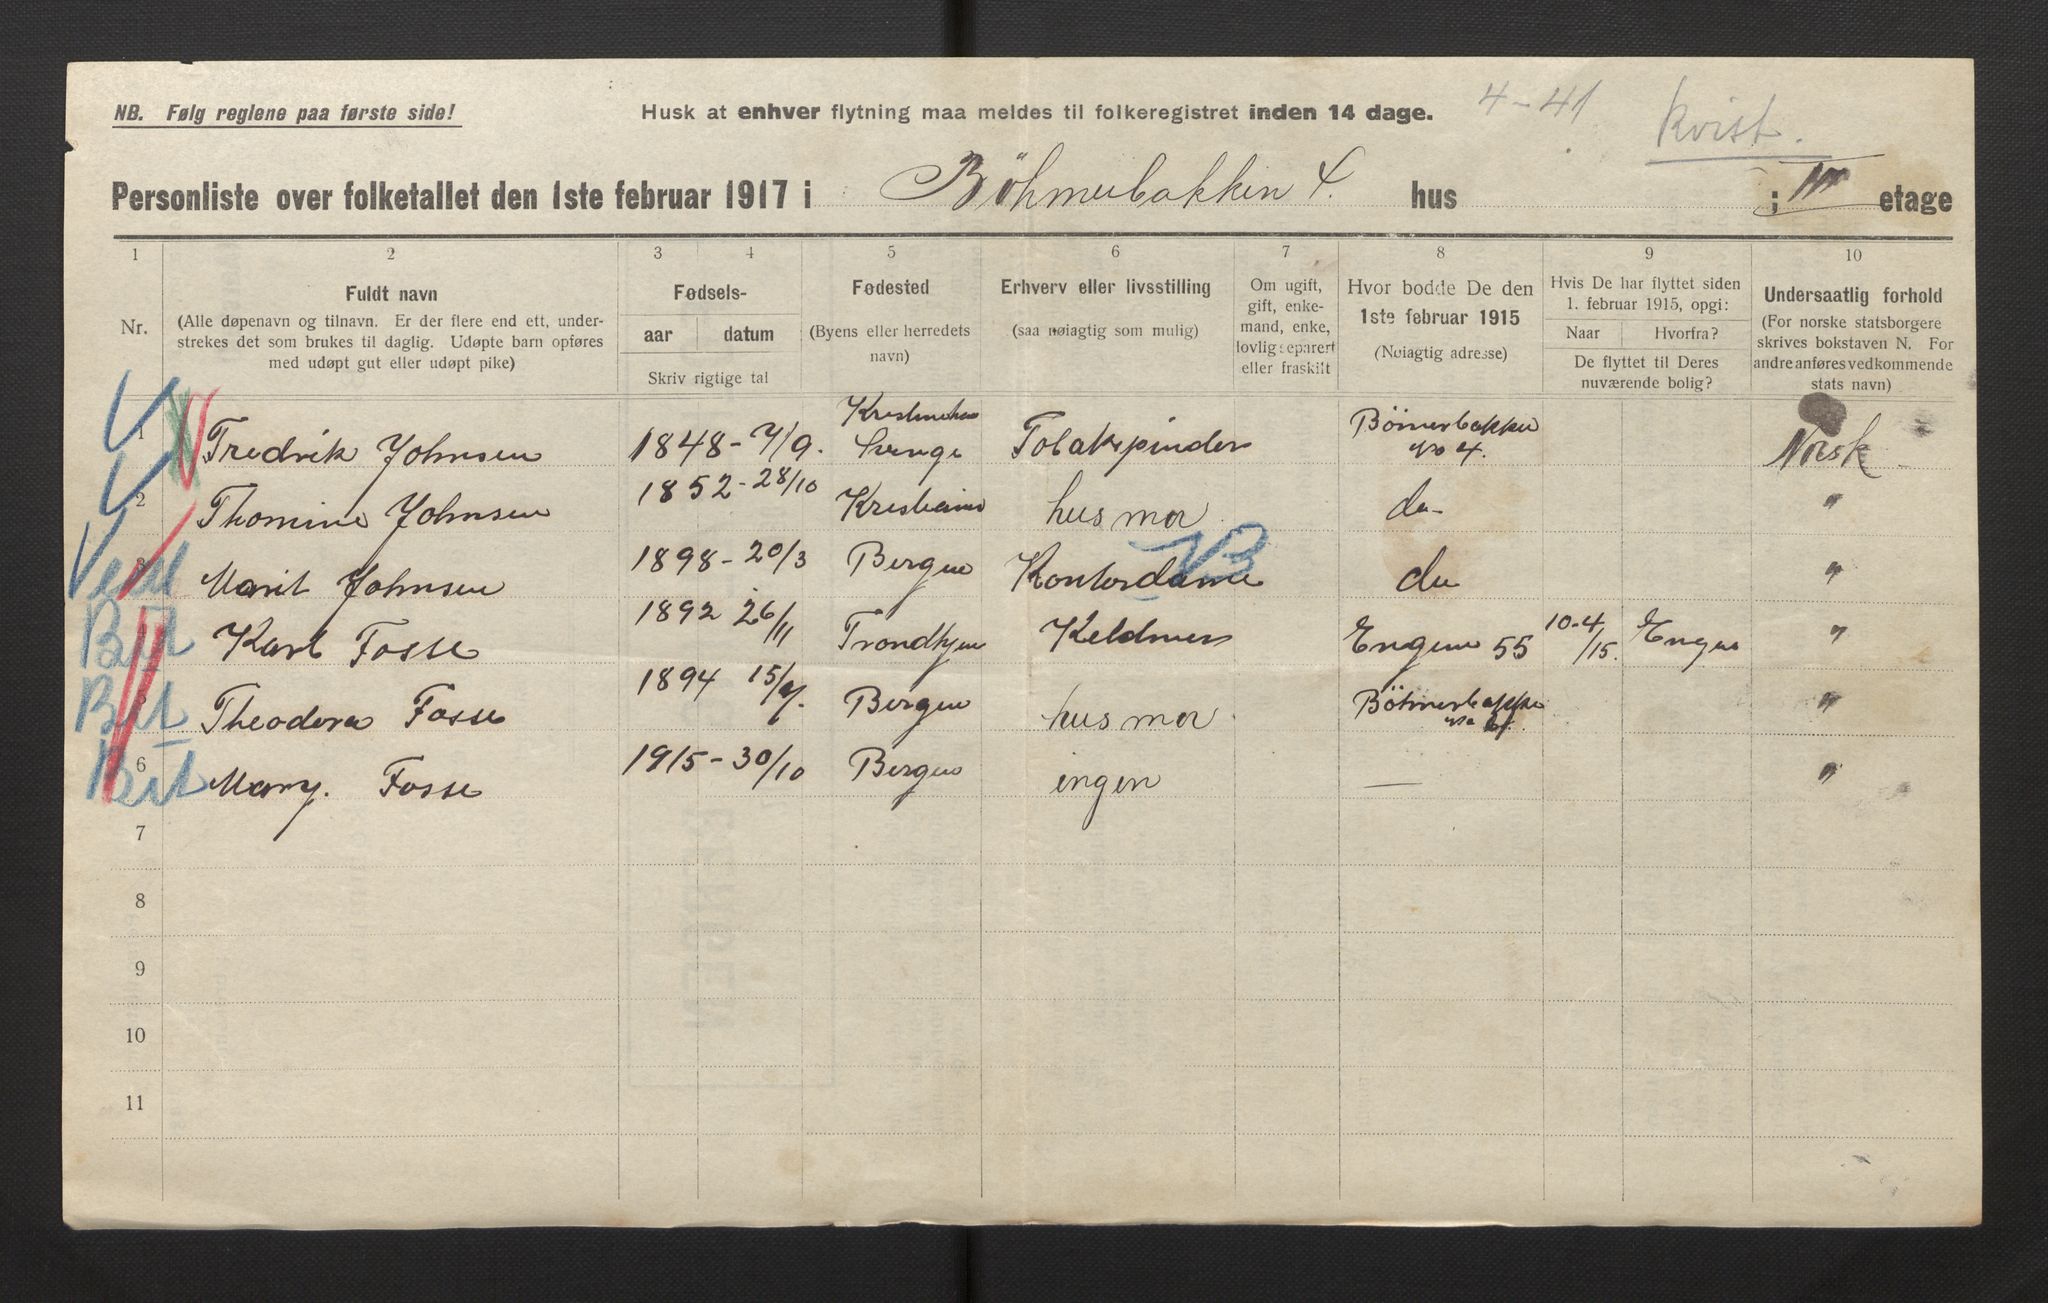 NB. Følg reglene paa første side!
Husk at enhver flytning maa meldes til folkeregistret inden 14 dage.
4-41
Kvist.
Personliste over folketallet den 1ste februar 1917 i Böhmerbakken 4. hus ; etage
1 2 3 4 5 6 7 8 9 10
Nr.
Fuldt navn
(Alle døpenavn og tilnavn. Er der flere end ett, under-
strekes det som brukes til daglig. Udøpte barn opføres
med udøpt gut eller udøpt pike)
Fødsels-
aar datum
Skriv rigtige tal
Fødested
(Byens eller herredets
navn)
Erhverv eller livsstilling
(saa nøiagtig som mulig)
Om ugift,
gift, enke-
mand, enke,
lovlig separert
eller fraskilt
Hvor bodde De den
1ste februar 1915
(Nøiagtig adresse)
Hvis De har flyttet siden
1. februar 1915, opgi:
Naar Hvorfra?
De flyttet til Deres
nuværende bolig?
Undersaatlig forhold
(For norske statsborgere
skrives bokstaven N. For
andre anføres vedkommende
stats navn)
1 Fredrik Johnsen 1848 - 7/9. Tobakspinder Börnerbakken No 4. Norsk
2 Thomine Johnsen 1852 - 28/10 Kristiania husmor do - "
3 Marit Johnsen 1898 - 20/3 Bergen Kontordame do "
4 Karl Fosse 1892 26/11 Trondhjem Keldner Engen 55 10-4/15. Engen "
5 Theodora Fosse 1894 15/ Bergen husmor Böhmerbakke No "
6 Mary. Fosse 1915 - 30/10 Bergen ingen — "
7
8
9
10
11